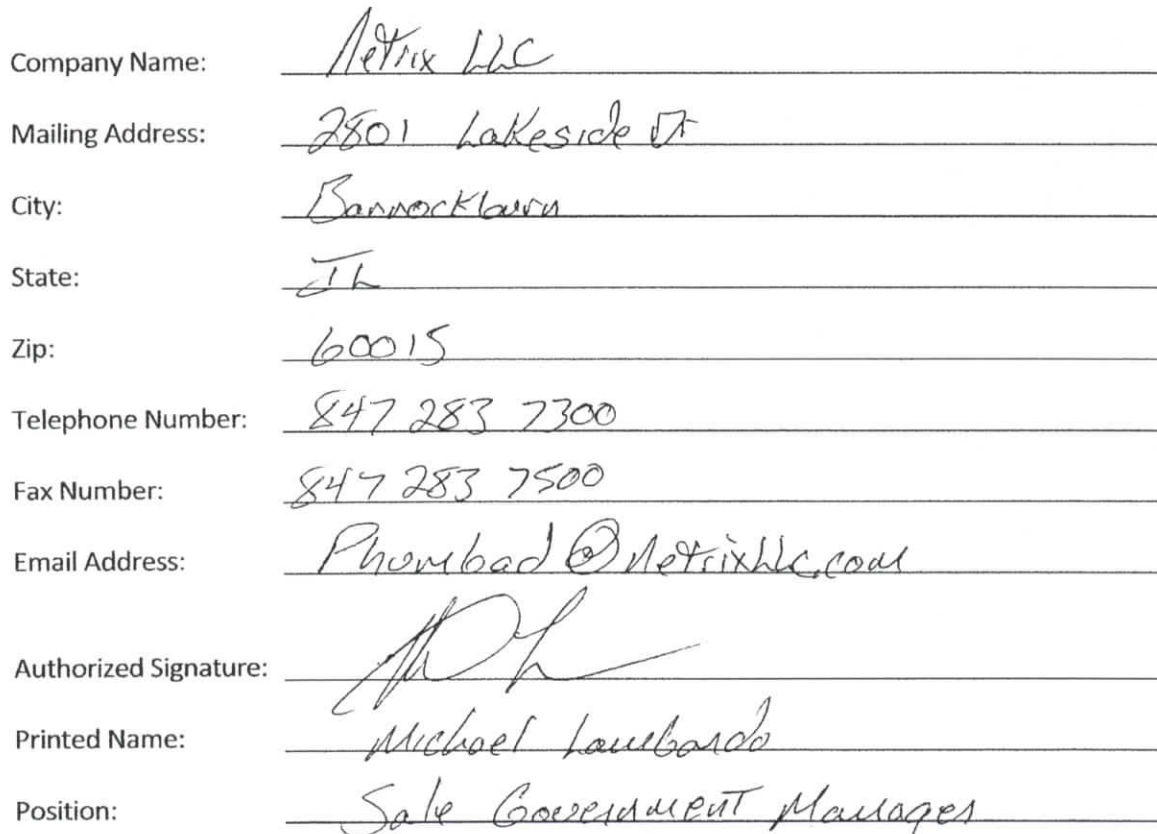 Company Name: Netrix LLC
Mailing Address: 2801 Lakeside Dr
City: Bannockburn
State: IL
Zip: 60015
Telephone Number: 847 283 7300
Fax Number: 847 283 7500
Email Address:
Authorized Signature:
Printed Name: Michael Lombardo
Position: Sale Government Manager